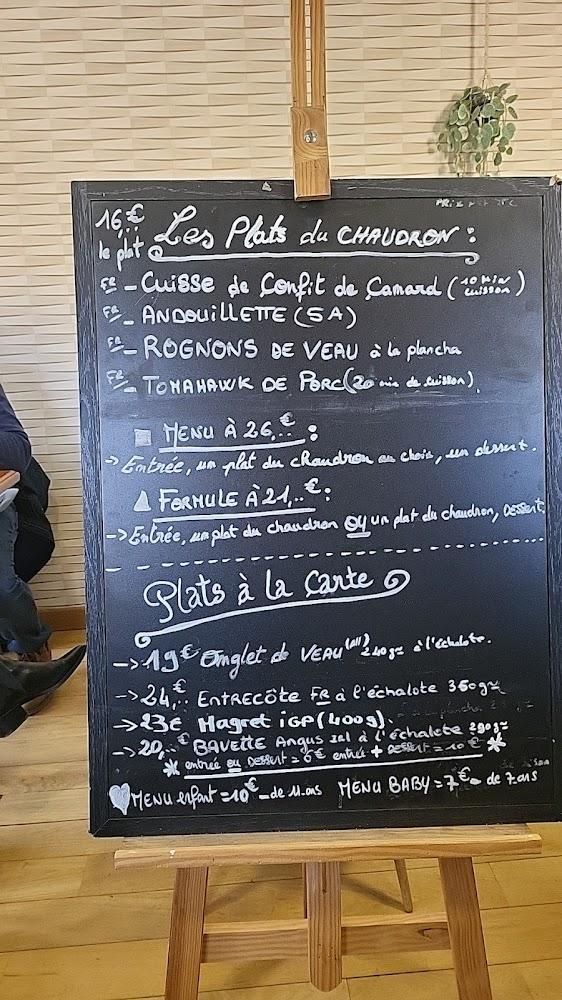 16,..€
le plat
Les Plats du CHAUDRON :
FR - Cuisse de Confit de Canard (10 min cuisson)
FR - ANDOUILLETTE (5A)
FR - ROGNONS DE VEAU à la plancha
FR - TOMAHAWK DE PORC (20 min de cuisson)
MENU À 26,..€ :
-> Entrée, un plat du chaudron au choix, un dessert.
FORMULE À 21,..€ :
-> Entrée, un plat du chaudron OU un plat du chaudron, DESSERT
Plats à la Carte
-> 19€ Onglet de VEAU (all) 240gr à l'échalote.
-> 24,..€ ENTRECÔTE FR à l'échalote 350gr
-> 23€ Magret iGP (400g)
-> 20,..€ BAVETTE Angus Irl à l'échalote 290gr
* entrée ou DESSERT = 6€ entrée + DESSERT = 10€ *
MENU enfant = 10€ - de 11 ans MENU BABY = 7€ - de 7 ans